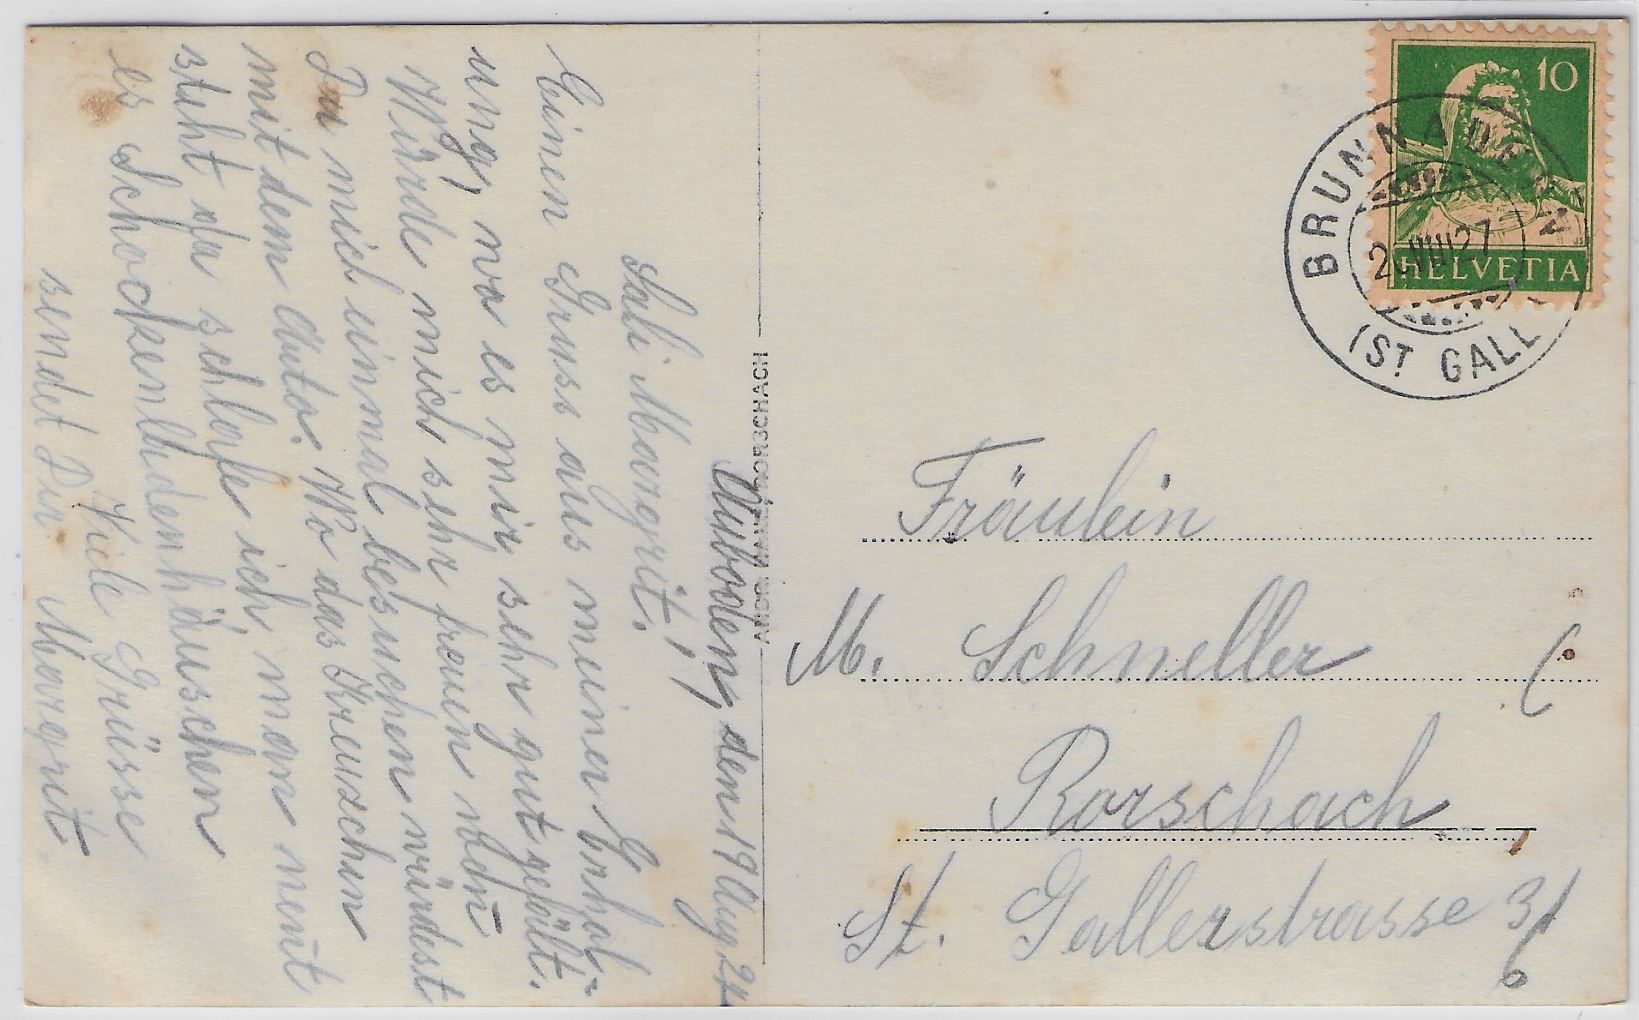 Auboden, den 19 Aug 27
Sali Margrit!
Einen Gruss aus meiner Erhol-
ung, wo es mir sehr gut gefält.
Würde mich sehr freuen wen
Du mich einmal besuchen würdest
mit dem Auto. Wo das Kreuzchen
steht da schlafe ich, man nent
es Schockenludenhäuschen
Viele Grüsse
sendet Dir Margrit.
ANDR. HANE, RORSCHACH
10
HELVETIA
BRUNNADERN
VIII 27
(ST. GALL
Fräulein
M. Schneller
Rorschach
St. Gallerstrasse